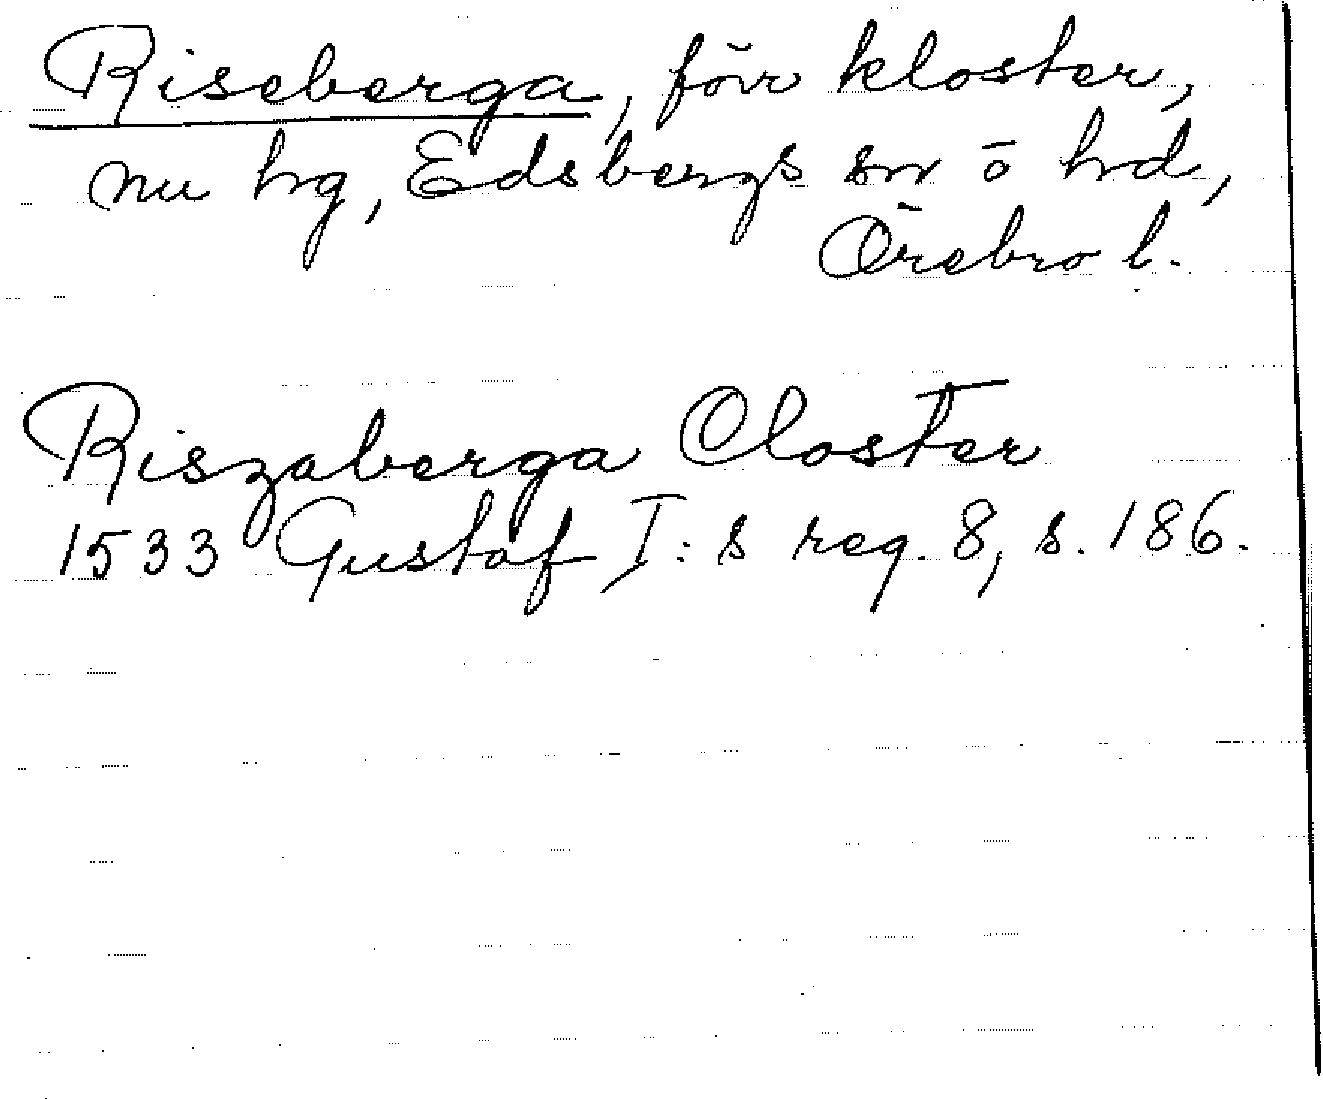 Riseberga, förr kloster,
nu hg, Edsbergs sn o hd,
Örebro l.
Riszaberga Closter
1533 Gustaf I:s reg. 8, s. 186.